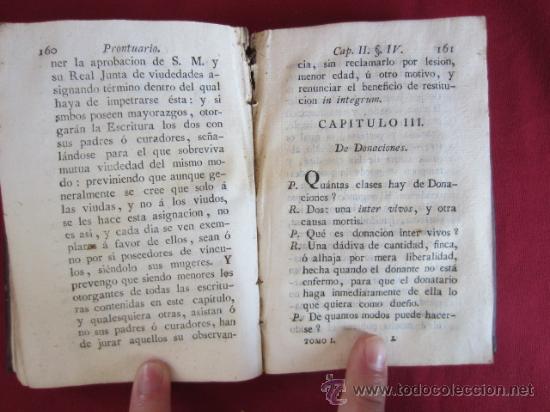 160 Prontuario.
ner la aprobacion de S. M. y
su Real Junta de viudedades a-
signando término dentro del qual
haya de impetrarse ésta: y si
ambos poseen mayorazgos, otor-
garán la Escritura los dos con
sus padres ó curadores, seña-
lándose para el que sobreviva
mutua viudedad del mismo mo-
do: previniendo que aunque ge-
neralmente se cree que solo á
las viudas, y no á los viudos,
se les hace esta asignacion, no
es asi, y cada dia se ven exem-
plares á favor de ellos, seán ó
no por si poseedores de víncu-
los, siéndolo sus mugeres. Y
prevengo que siendo menores los
otorgantes de todas las escritu-
ras contenidas en este capítulo,
y qualesquiera otras, asistan ó
no sus padres ó curadores, han
de jurar aquellos su observan-
Cap. II. §. IV. 161
cia, sin reclamarlo por lesion,
menor edad, ú otro motivo, y
renunciar el beneficio de restitu-
cion in integrum.
CAPITULO III.
De Donaciones.
P. Quántas clases hay de Dona-
ciones?
R. Dos: una inter vivos, y otra
causa mortis.
P. Qué es donacion inter vivos?
R. Una dádiva de cantidad, finca,
ó alhaja por mera liberalidad,
hecha quando el donante no está
enfermo, para que el donatario
haga inmediatamente de ella lo
que quiera como dueño.
P. De quantos modos puede hacer-
se?
TOMO I. L
www.todocoleccion.net